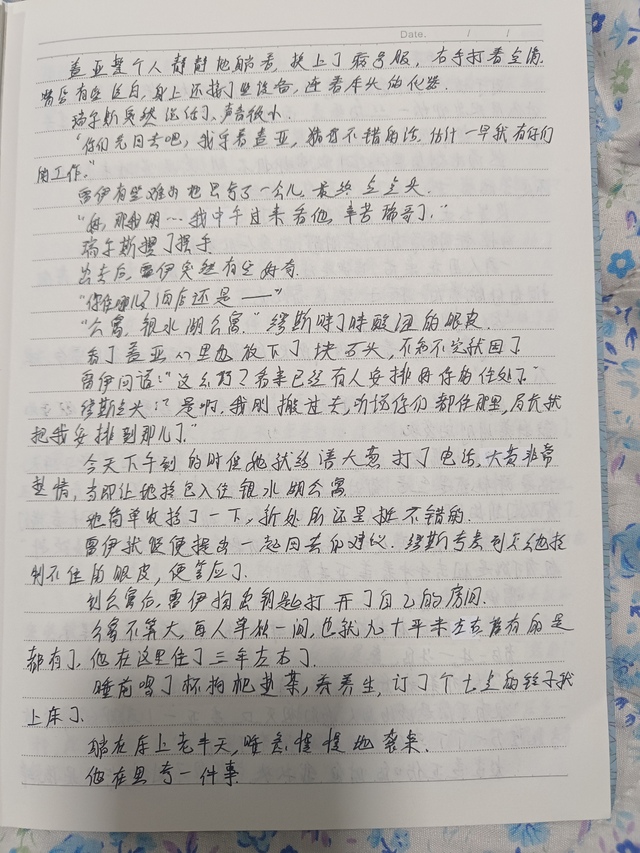 Date. / /
盖亚整个人静静地躺着，换上了病号服，右手打着点滴
嘴唇有些泛白，身上还接了些设备，连着床头的仪器
瑞尔斯突然怔住了，声音很小
“你们先回去吧，我守着盖亚，精神不错的话，估计一早就有你们
的工作。”
雷伊有些难为地思考了一会儿，最终点点头
“好，那我明…我中午过来看他，辛苦瑞哥了。”
瑞尔斯摆了摆手
出去后，雷伊突然有些好奇
“你住哪儿？酒店还是——”
“公寓，银水湖公寓。”缪斯眨了眨酸涩的眼皮
看了盖亚心里也放下了块石头，不知不觉就困了
雷伊问道：“这么巧？看来已经有人安排好你的住处了”
缪斯点头：“是啊，我刚搬过去，听说你们都住那里，局长就
把我安排到那儿了。”
今天下午到的时候她就给 打了电话，大 非常
热情，当即让她拎包入住银水湖公寓
她简单收拾了一下，新处所还是挺不错的
雷伊就顺便提出一起回去的建议，缪斯考虑到 她控
制不住的眼皮，便答应了
到公寓后，雷伊掏出钥匙打开了自己的房间
公寓不算大，每人单独一间，也就九十平米左右 有的是
都有了，他在这里住了三年左右了
睡前喝了杯枸杞热茶，养养生，订了个七点的铃子就
上床了
躺在床上老半天，睡意慢慢地袭来
他在思考一件事